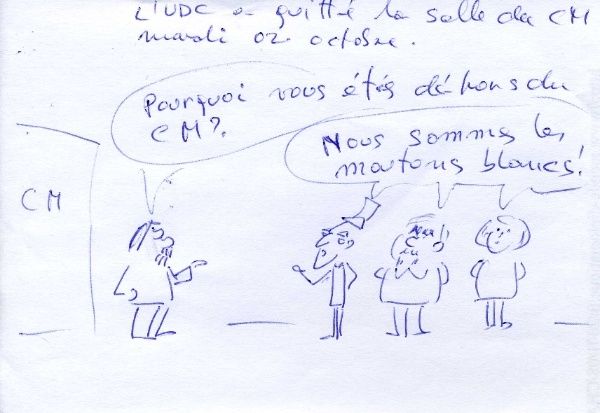 L'UDC a quitté la salle du CM
mardi 02 octobre.
Pourquoi vous étés déhors du
CM?
Nous sommes les
moutons blancs!
CM